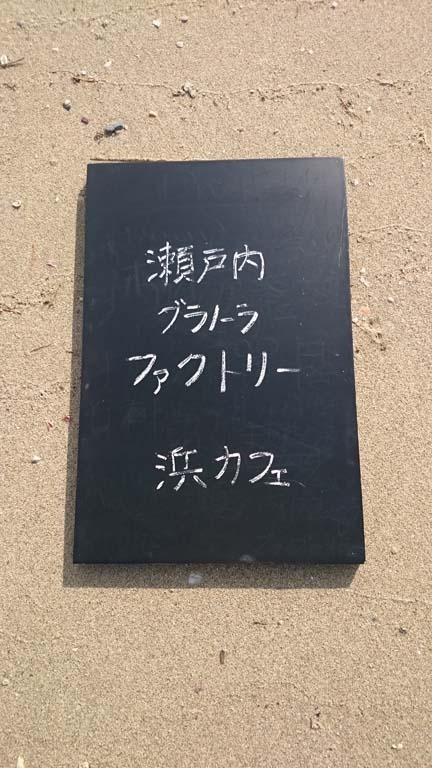 瀬戸内
グラノーラ
ファクトリー
浜カフェ